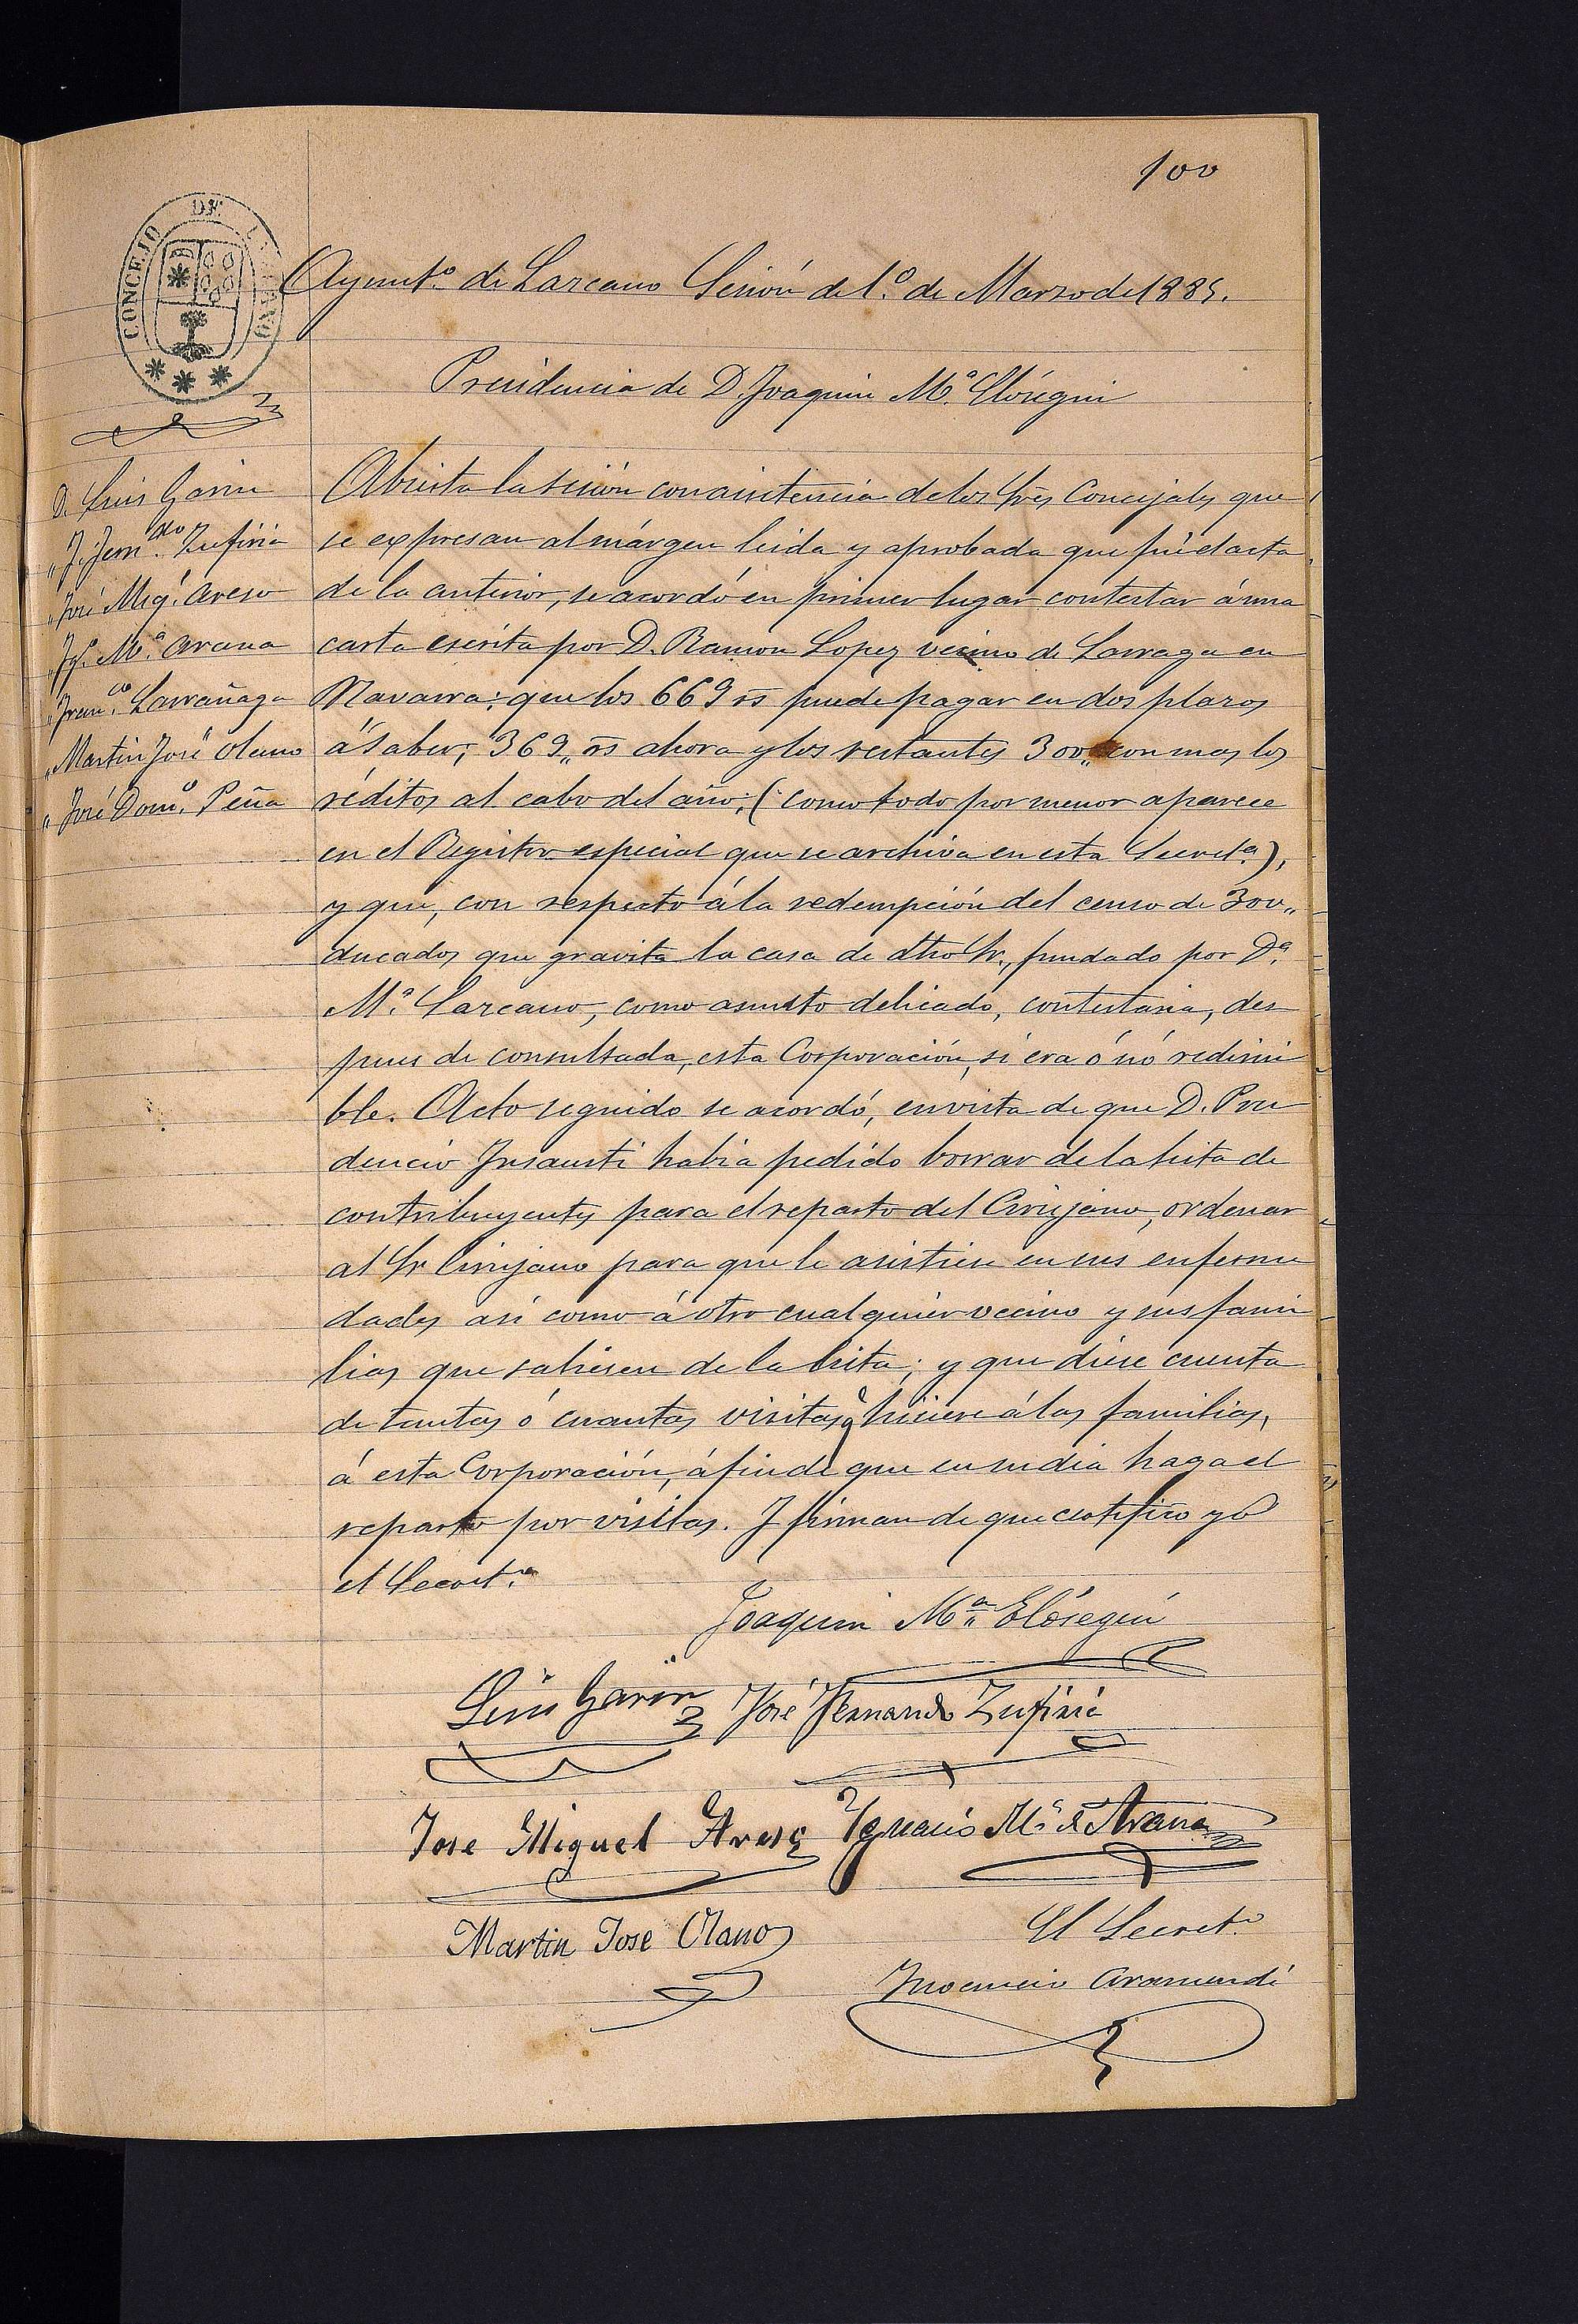 100
CONCEJO DE
Ayunt.º de Lazcano Sesión del 1.º de Marzo de 1885.
Presidencia de D. Joaquin M.ª Elósegui
D. Luis Garin
" J. Fern.do Zufiria
" José Mig.l Areso
" Ig.º M.ª Arana
" Fran.co Larrañaga
" Martin José Olano
" José Dom.º Peña
Abierta la sesión con asistencia de los Sres Concejales que
se expresan al márgen leida y aprobada que fué el acta
de la anterior, se acordó en primer lugar contestar á una
carta escrita por D. Ramon Lopez vecino de Larraga en
Navarra: que los 669 rs puede pagar en dos plazos
á saber; 369,, rs ahora y los restantes 300,, con mas los
réditos al cabo del año; (como todo por menor aparece
en el Registro especial que se archiva en esta Secret.ª),
y que, con respecto á la redempción del censo de 300,,
ducados que gravita la casa de dho Sr., fundado por D.ª
M.ª Lazcano, como asunto delicado, contestaria, des
pues de consultada, esta Corporación, si era ó nó redimi
ble. Acto seguido se acordó, en vista de que D. Pru
dencio Insausti habia pedido borrar de la lista de
contribuyentes para el reparto del Cirujano, ordenar
al Sr Cirujano para que le asistiese en sus enferme
dades asi como á otro cualquier vecino y sus fami
lias que saliesen de la lista; y que diese cuenta
de tantas ó cuantas visitas q hiciere á las familias,
á esta Corporación, á fin de que en su dia haga el
reparto por visitas. Y firman de que certifico yo
el Secret.º
Joaquin M.ª Elósegui
Luis Garin José Fernando Zufiria
Jose Miguel Areso Ygnacio M.ª de Arana
Martin Jose Olano
El Secret.º
Inocencio Aramendi